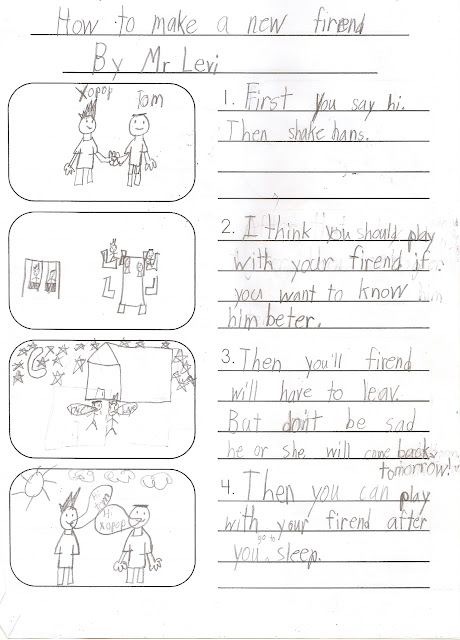 How to make a new firend
By Mr Levi
Xopop Tom
1. First you say hi.
Then shake hans.
2. I think you should play
with your firend if
you want to know
him beter.
3. Then you'll firend
will have to leav.
But don't be sad
he or she will come back
tomorrow!
Hi
Xopop
4. Then you can play
with your firend after
you go to sleep.